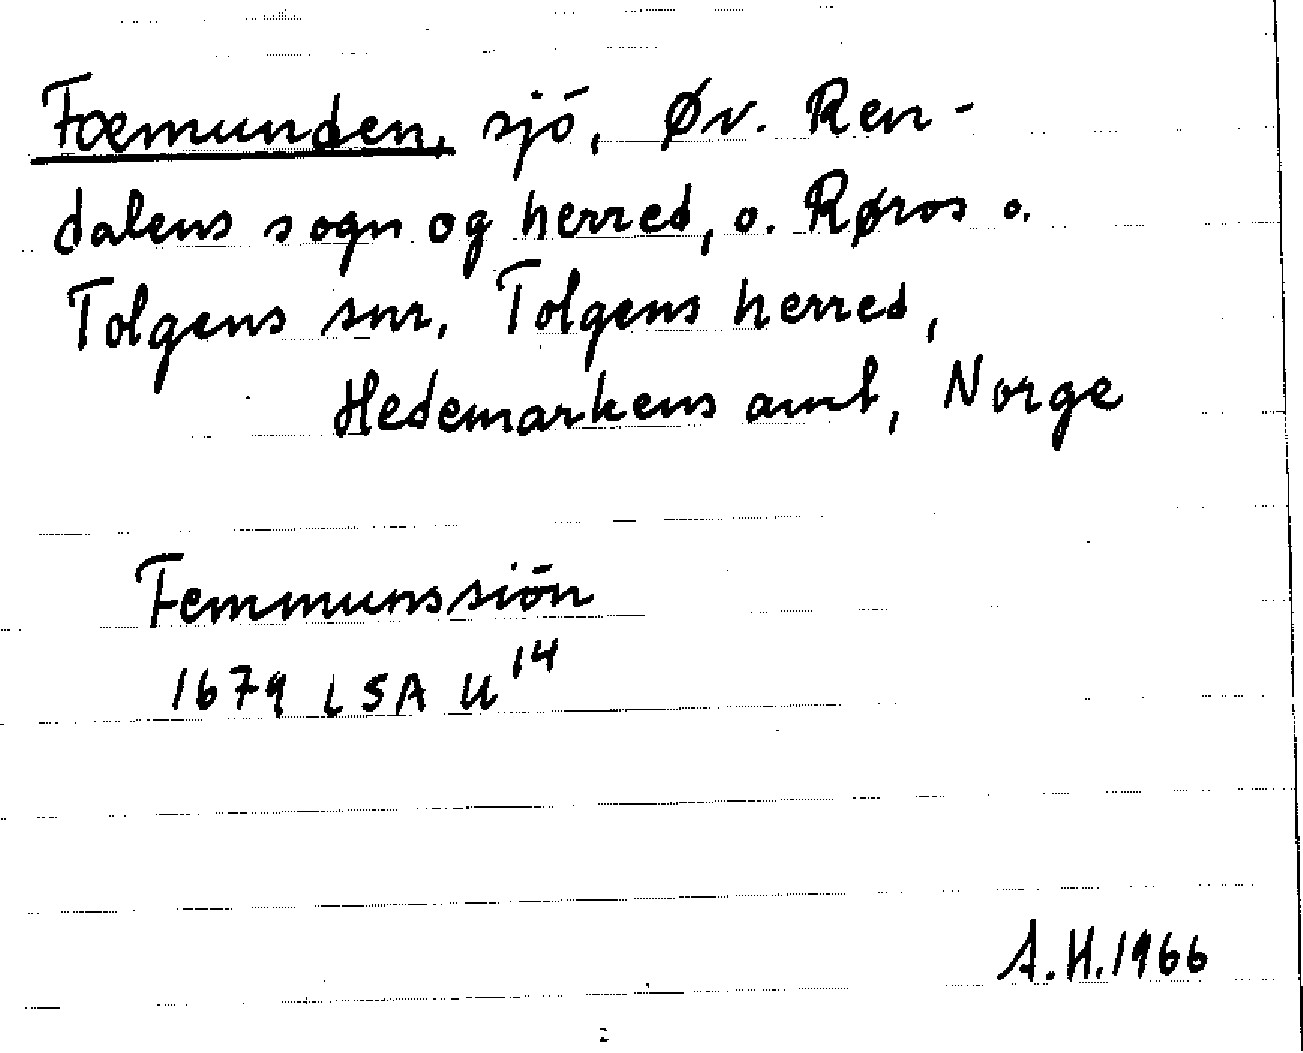 Fæmunden, sjö, Øv. Ren-
dalens sogn og herred, o. Røros o.
Tolgens snr, Tolgens herred,
Hedemarkens amt, Norge
Femmunssiön
1679 LSA U14
A.H.1966